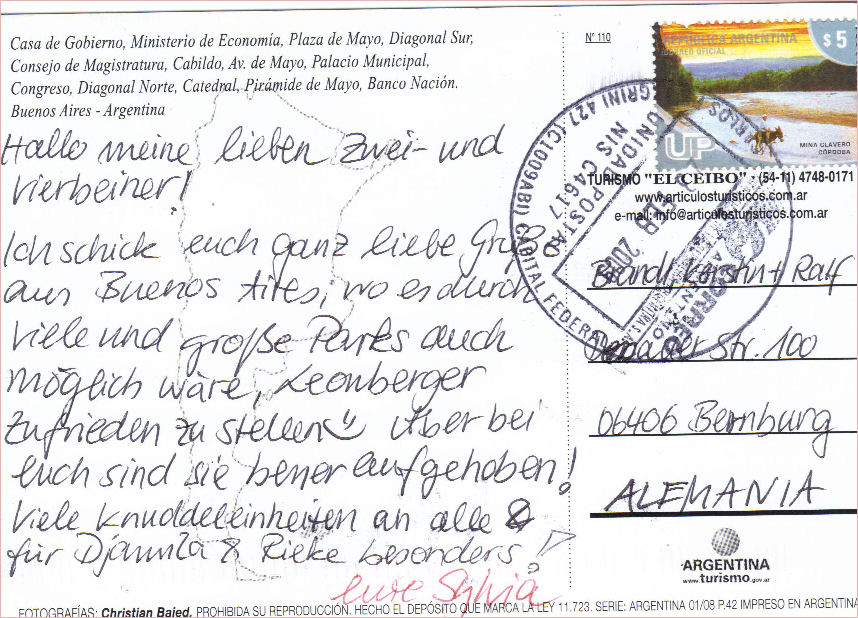 Casa de Gobierno, Ministerio de Economía, Plaza de Mayo, Diagonal Sur,
Consejo de Magistratura, Cabildo, Av. de Mayo, Palacio Municipal,
Congreso, Diagonal Norte, Catedral, Pirámide de Mayo, Banco Nación.
Buenos Aires - Argentina
Hallo meine lieben Zwei- und
Vierbeiner!
Ich schick euch ganz liebe Grüße
aus Buenos Aires, wo es durch
viele und große Parks auch
möglich wäre, Leonberger
zufrieden zu stellen Aber bei
euch sind sie besser aufgehoben!
Viele Knuddeleinheiten an alle &
für Djamila & Rieke besonders!
eure Sylvia
Nº 110
REPÚBLICA ARGENTINA
CORREO OFICIAL
$5
MINA CLAVERO
CÓRDOBA
UP
TURISMO "EL CEIBO" - (54-11) 4748-0171
www.articulosturisticos.com.ar
e-mail: info@articulosturisticos.com.ar
UNIDAD POSTAL
NIS C4617
427 (C1009ABI) CAPITAL FEDERAL
FEB
CORREO
Brandt, Kerstin + Ralf
Str. 100
06406 Bernburg
ALEMANIA
ARGENTINA
www.turismo.gov.ar
FOTOGRAFÍAS: Christian Baied. PROHIBIDA SU REPRODUCCIÓN. HECHO EL DEPÓSITO QUE MARCA LA LEY 11.723. SERIE: ARGENTINA 01/08 P.42 IMPRESO EN ARGENTINA